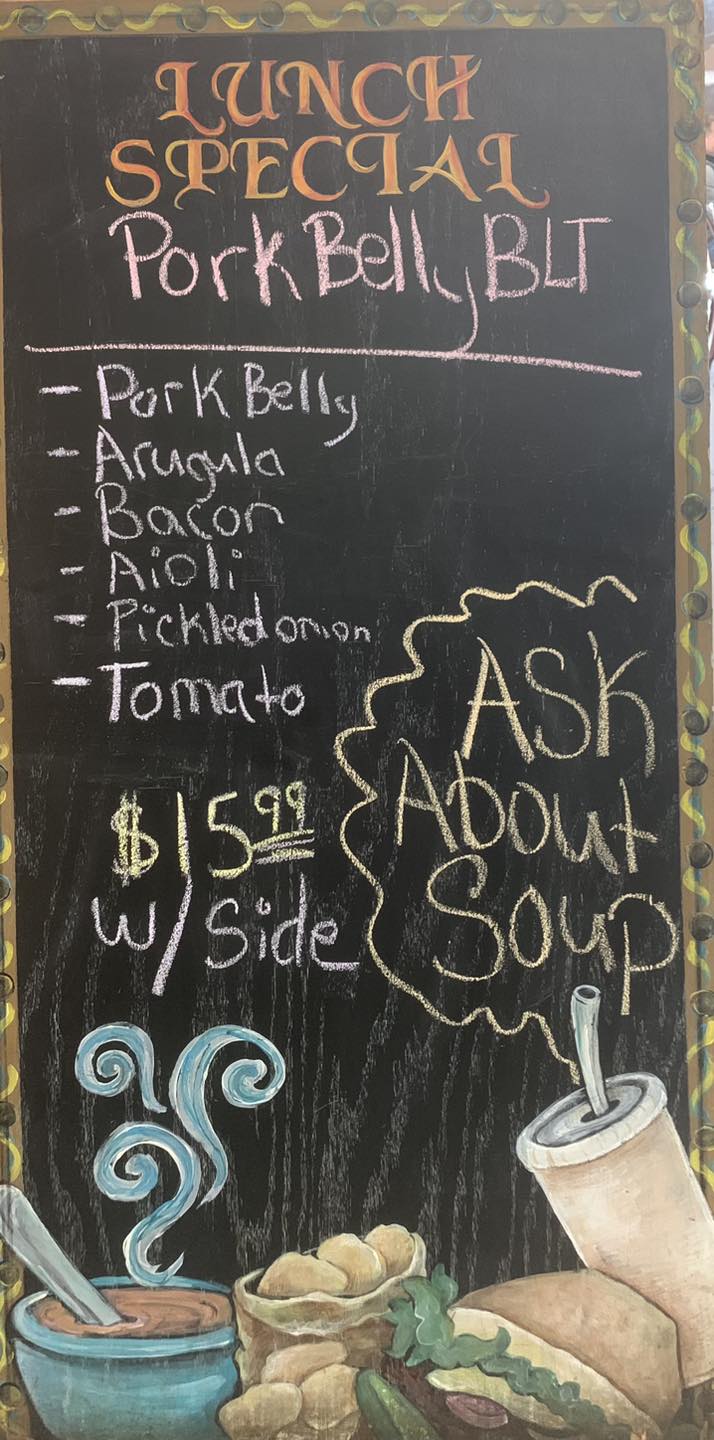 LUNCH
SPECIAL
Pork Belly BLT
- Pork Belly
- Arugula
- Bacon
- Aioli
- Pickled onion
- Tomato
$15.99
w/ Side
ASK
About
Soup